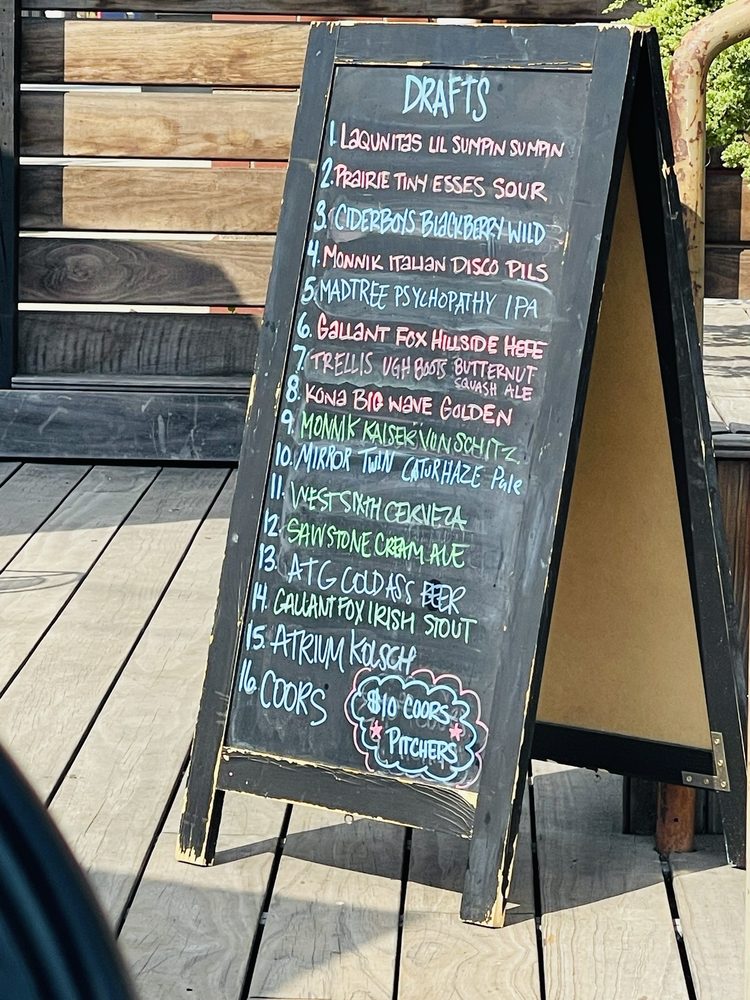 DRAFTS
1. LAQUNITAS LIL SUMPIN SUMPIN
2. PRAIRIE TINY ESSES SOUR
3. CIDERBOYS BLACKBERRY WILD
4. MONNIK ITALIAN DISCO PILS
5. MADTREE PSYCHOPATHY IPA
6. GALLANT FOX HILLSIDE HEFE
7. TRELLIS UGH BOOTS BUTTERNUT
SQUASH ALE
8. KONA BIG WAVE GOLDEN
9. MONNIK KAISER VON SCHITZ
10. MIRROR TWIN CATURHAZE Pale
11. WEST SIXTH CERVEZA
12. SAWSTONE CREAM ALE
13. ATG COLD ASS BEER
14. GALLANT FOX IRISH STOUT
15. ATRIUM KOLSCH
16. COORS
$10 COORS
PITCHERS